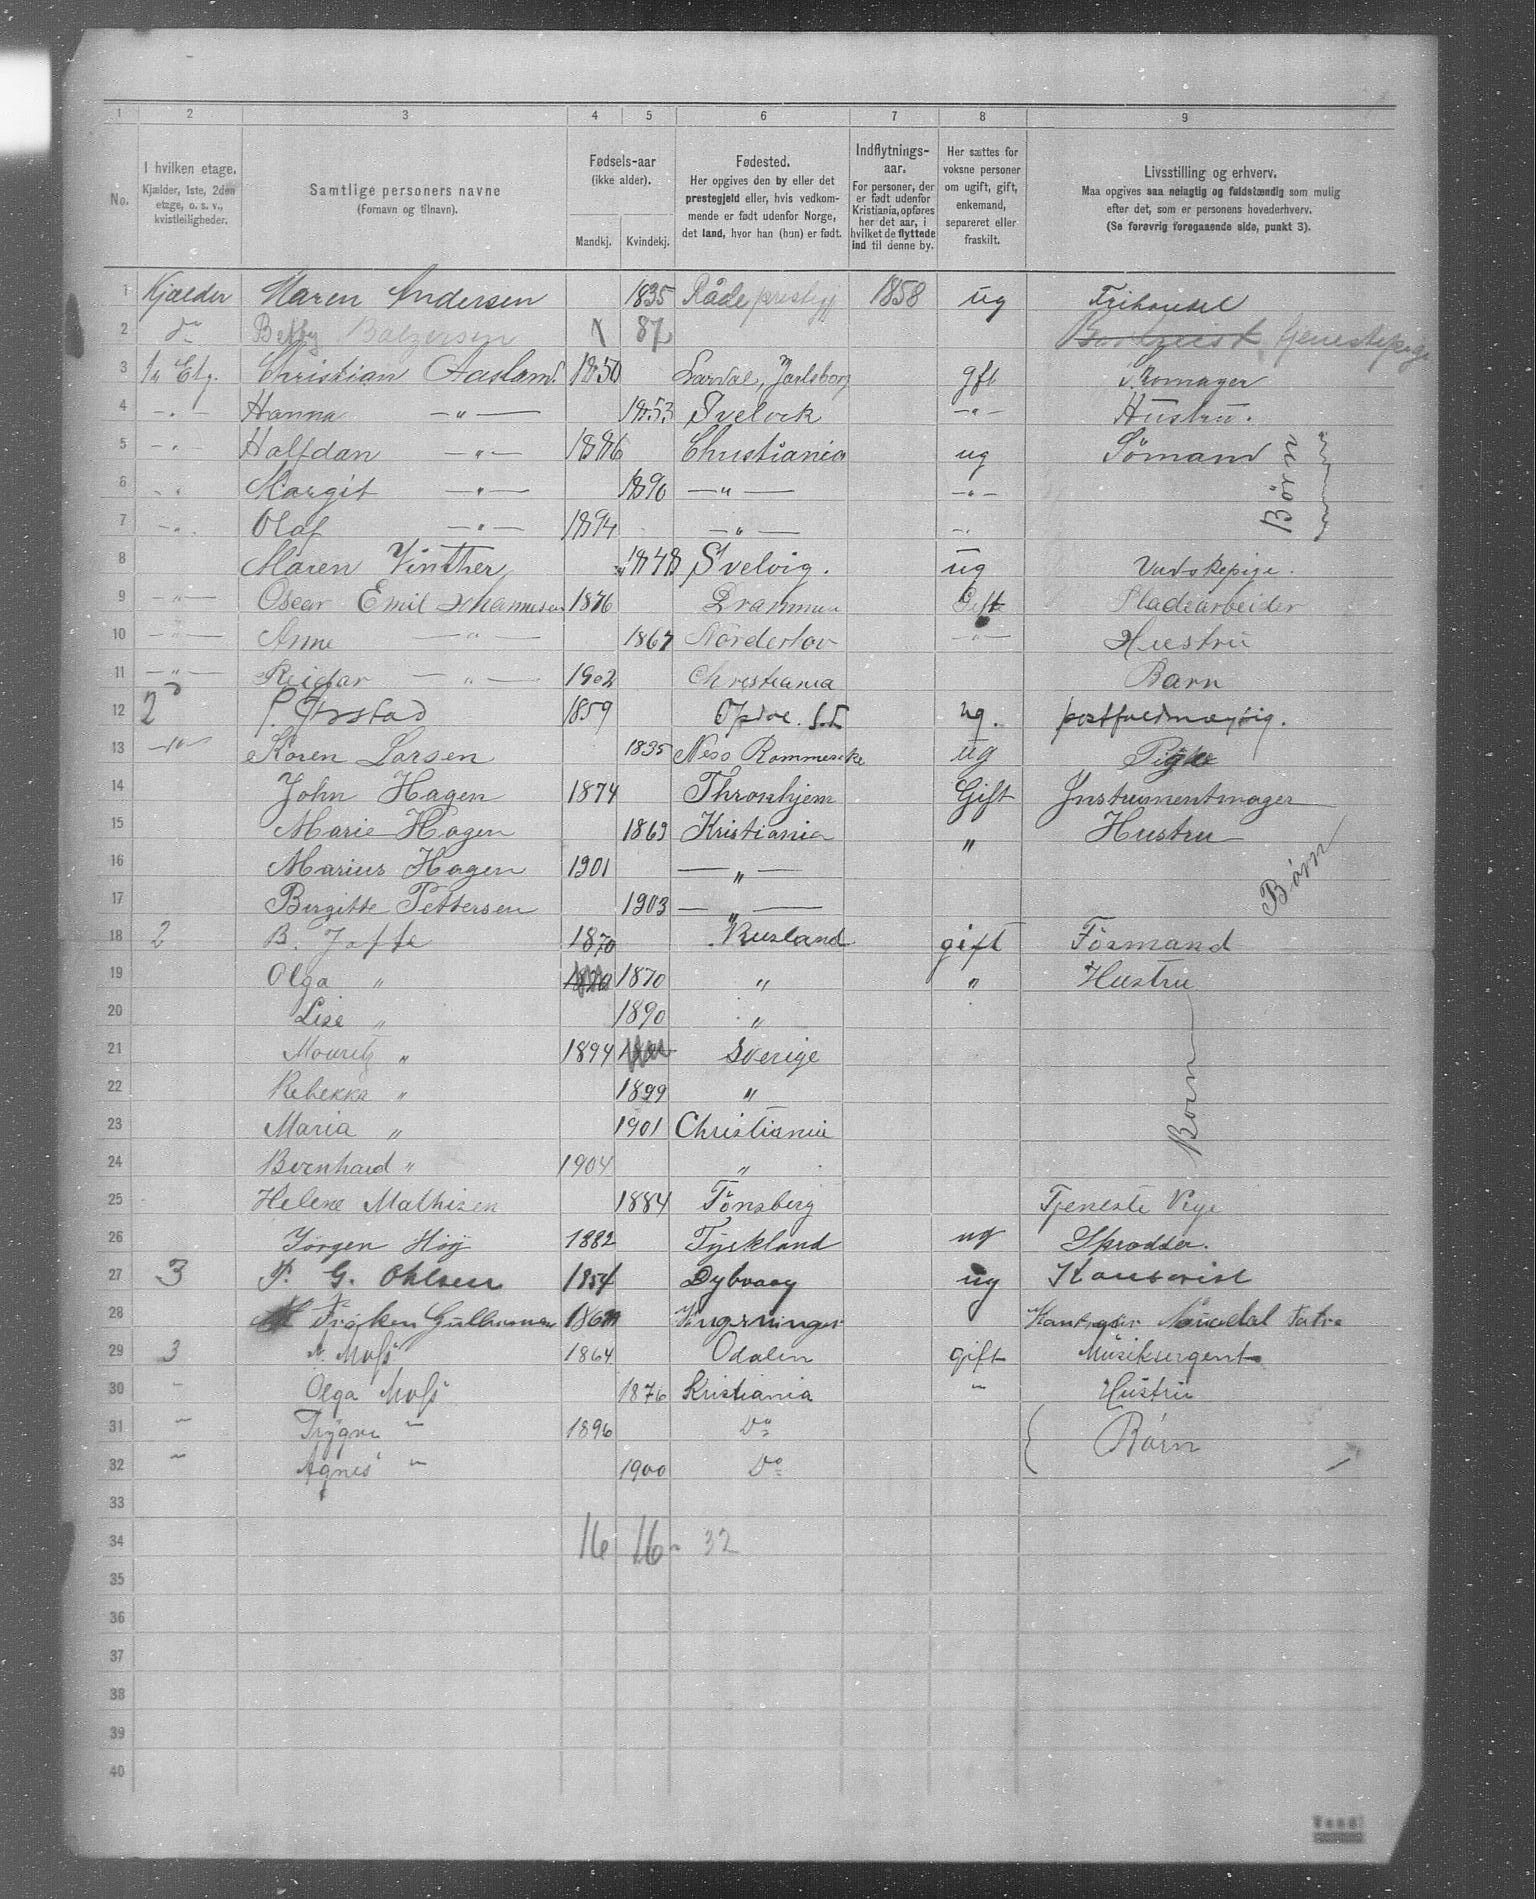 1 2 3 4 5 6 7 8 9
No.
I hvilken etage.
Kjælder, 1ste, 2den etage, o. s. v., kvistleiligheder.
Samtlige personers navne
(Fornavn og tilnavn).
Fødsels-aar
(ikke alder).
Mandkj. Kvindekj.
Fødested.
Her opgives den by eller det
prestegjeld eller, hvis vedkom-
mende er født udenfor Norge,
det land, hvor han (hun) er født.
Indflytnings-
aar.
For personer, der
er født udenfor
Kristiania, opføres
her det aar, i
hvilket de flyttede
ind til denne by.
Her sættes for
voksne personer
om ugift, gift,
enkemand,
separeret eller
fraskilt.
Livsstilling og erhverv.
Maa opgives saa nøiagtig og fuldstændig som mulig
efter det, som er personens hovederhverv.
(Se forøvrig foregaaende side, punkt 3).
1 Kjælder Maren Andersen 1835 Råde prestegj 1858 ug Frihandel
2 do Betzy Balzersen 87 tjenestepige
3 1ste Etg. Christian Aasland 1850 Lardal, Jarlsberg gft Skomager
4 - " - Hanna - " - 1853 Svelvik - " - Hustru.
5 - " - Halfdan - " - 1886 Christiania ug Sømand
6 - " - Margit - " - 1890 - " - - " - Børn
7 - " - Olaf - " - 1894 - " - - " -
8 Maren Vinther 1848 Svelvig. ug Vadskepige.
9 - " - Oscar Emil Johannesen 1876 Drammen Gift Pladearbeider
10 - " - Anne - " - 1867 Norderhov - " - Hustru
11 - " - Reidar - " - 1902 Christiania Barn
12 2 1859 ug.
13 - " - Karen Larsen 1835 Ness Rommerike ug Pige
14 John Hagen 1874 Throndhjem Gift Instrumentmager
15 Marie Hagen 1869 Kristiania " Hustru
16 Marius Hagen 1901 - " - Børn
17 Birgitte Pettersen 1903 - " -
18 2 B. Jaffe 1870 Rusland gift Formand
19 Olga " 1870 1870 " " Hustru
20 Lise " 1890 "
21 Mouritz " 1894 Sverige
22 Rebekka " 1899 " Børn
23 Maria " 1901 Christiania
24 Bernhard " 1904 "
25 Helene Mathisen 1884 Tønsberg Tjeneste Pige
26 Jørgen Høy 1882 Tyskland ug
27 3 P. G. Ohlsen 1854 Dybvaag ug
28 Frøken
29 3 A. Moss 1864 Odalen gift Musiksergent
30 - Olga Moss 1876 Kristiania " Hustru
31 - Trygve " 1896 Do Børn
32 - Agnes " 1900 Do
33
34 16 16 - 32
35
36
37
38
39
40